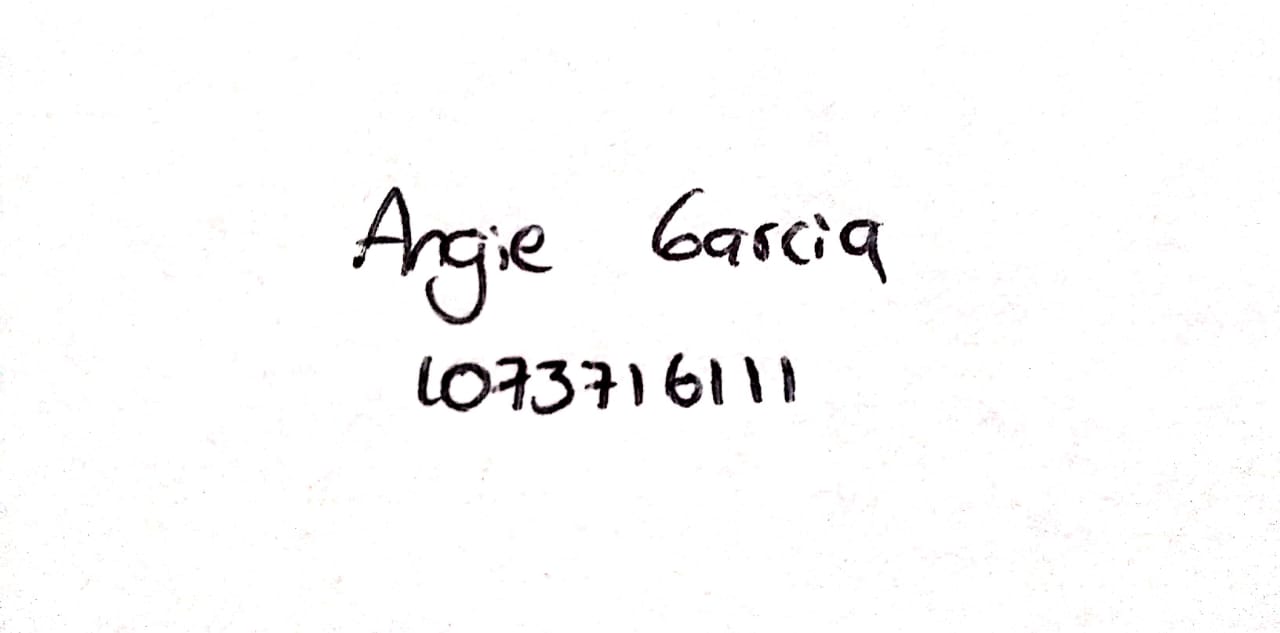 Angie Garcia
1073716111